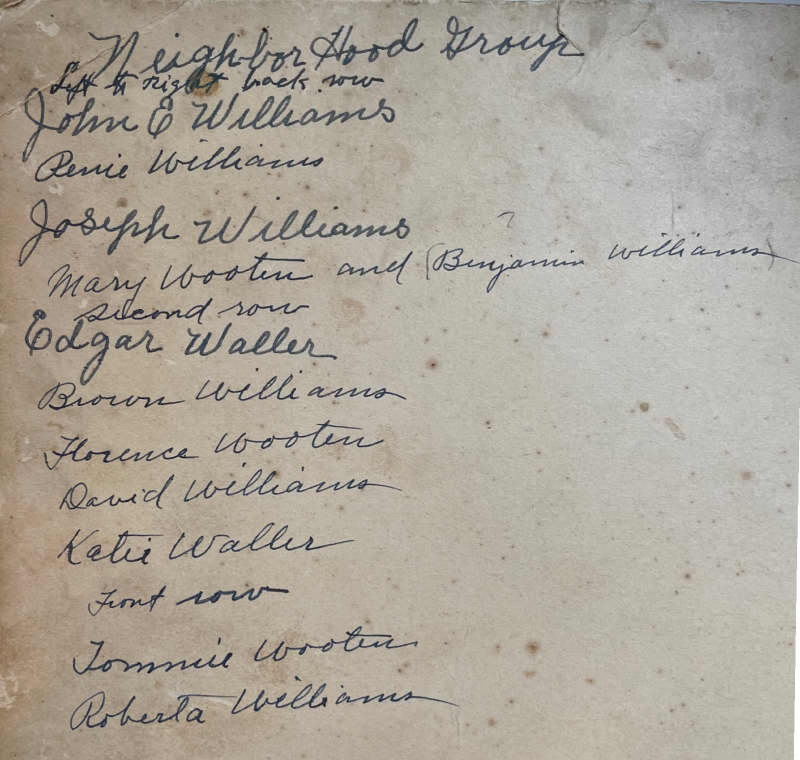 NeighborHood Group
Left to right back row
John E Williams
Renie Williams
Joseph Williams
?
Mary Wooten and (Benjamin Williams)
second row
Edgar Waller
Brown Williams
Florence Wooten
David Williams
Katie Waller
Front row
Tommie Wooten
Roberta Williams